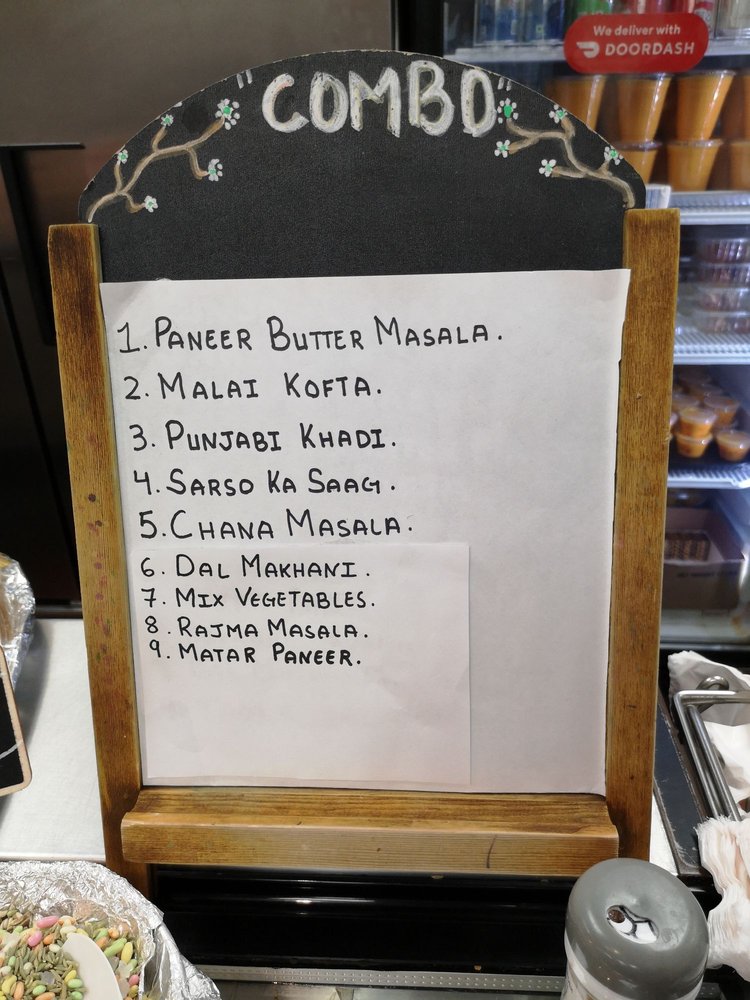 We deliver with
DOORDASH
"COMBO"
1. PANEER BUTTER MASALA.
2. MALAI KOFTA.
3. PUNJABI KHADI.
4. SARSO KA SAAG.
5. CHANA MASALA.
6. DAL MAKHANI.
7. MIX VEGETABLES.
8. RAJMA MASALA.
9. MATAR PANEER.